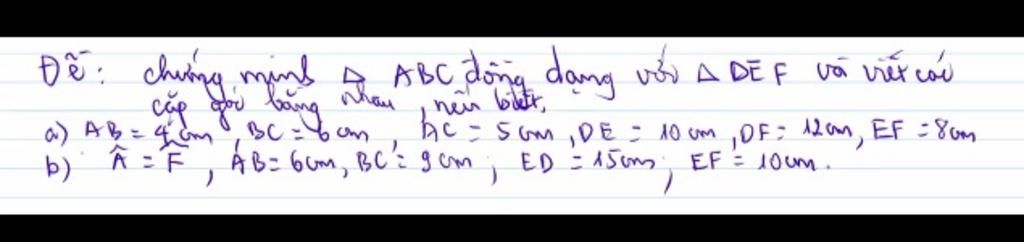 Đề: chứng minh △ ABC đồng dạng với △ DEF và viết các
cặp góc bằng nhau, nếu biết,
a) AB = 4 cm, BC = 6 cm, AC = 5 cm, DE = 10 cm, DF = 12 cm, EF = 8 cm
b) Â = F̂, AB = 6 cm, BC = 9 cm; ED = 15 cm; EF = 10 cm.